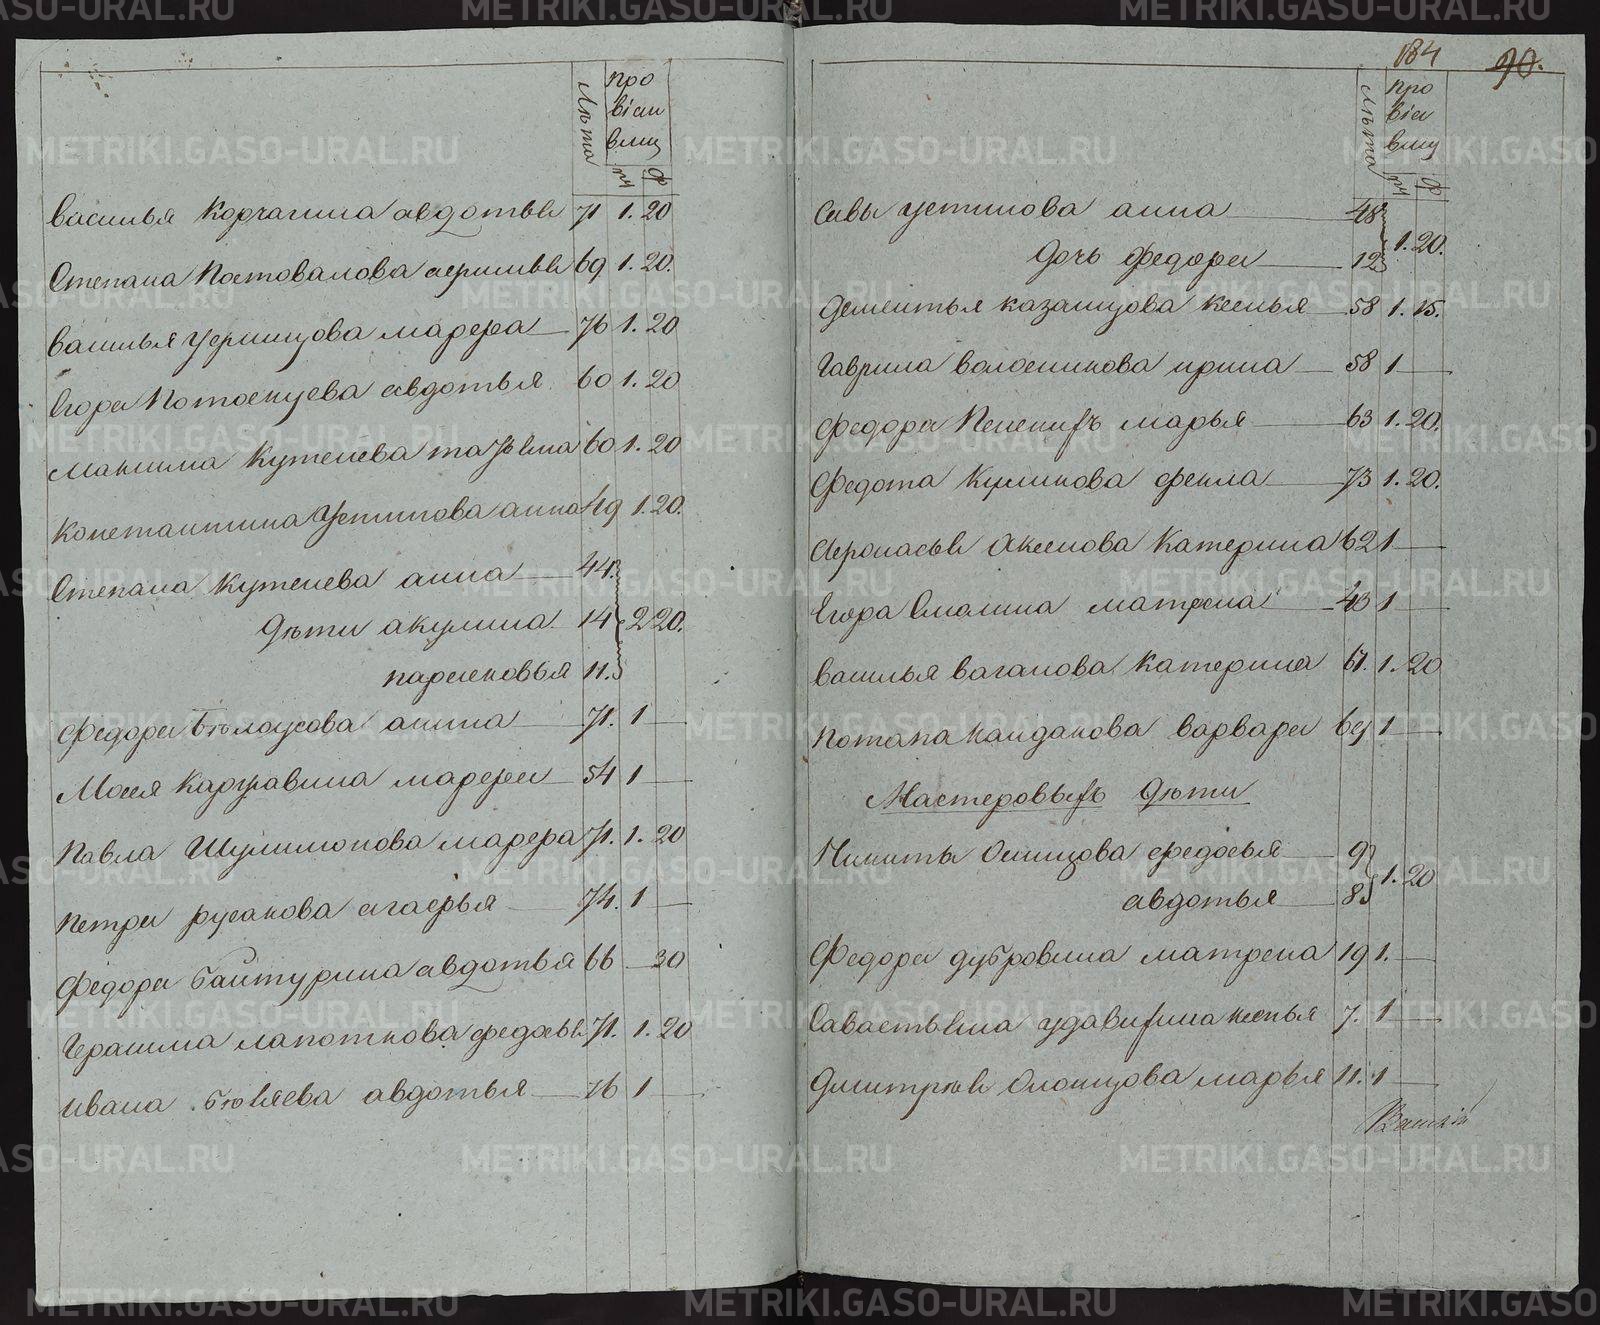 Лѣта
Про
віан
вмц
пу ф
Василья Корчагина авдотья 71 1. 20
Степана Постовалова аксинья 69 1. 20.
Василья Усринцова марфа 76 1. 20
Егора Потоскуева авдотья 60 1. 20
Максима Кутенева татьяна 60 1. 20
Константина Устинова анна 49 1. 20.
Степана Кутенева анна 44.
Дѣти акулина 14 2 20.
парасковья 11.
Федора Бѣлоусова анна 71. 1
Моисея Каргавина марфа 54 1
Павла Шулимонова марфа 71. 1. 20
Петра русанова агафья 74. 1
Федора Байтурина авдотья 66 30
Герасима лапоткова федосья 71. 1. 20
ивана авдотья 76 1
184 90.
Лѣта
Про
віан
вмц
пу ф
Савы устинова анна 48
дочь федора 12 1. 20.
Дементья казанцова ксенья 58 1. 15.
Гаврила волосникова ирина 58 1
Федора марья 63 1. 20.
Федота Куликова фекла 73 1. 20.
Афонасья аксенова Катерина 62 1
Егора Смолина матрена 43 1
василья ваганова Катерина 61. 1. 20
Потапа кайданова варвара 69 1
Мастеровыхъ Дѣти
Никиты Осинцова федосья 9
авдотья 8 1. 20
Федора дубровина матрена 19 1.
Савастьяна удавихина ксенья 7. 1
Дмитрия Олонцова марья 11. 1